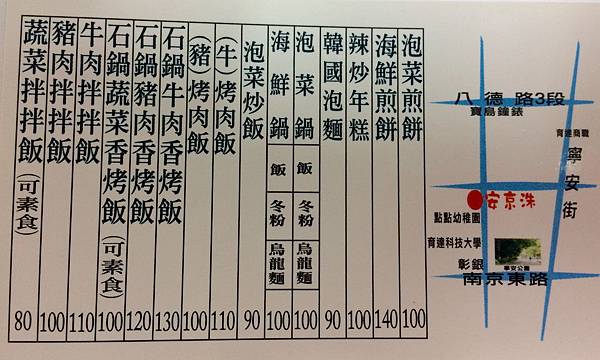 泡菜煎餅 100
海鮮煎餅 140
辣炒年糕 100
韓國泡麵 90
泡菜鍋 飯 冬粉 烏龍麵 100
海鮮鍋 飯 冬粉 烏龍麵 100
泡菜炒飯 90
(牛)烤肉飯 110
(豬)烤肉飯 100
石鍋牛肉香烤飯 130
石鍋豬肉香烤飯 120
石鍋蔬菜香烤飯(可素食) 100
牛肉拌拌飯 110
豬肉拌拌飯 100
蔬菜拌拌飯(可素食) 80
八德路3段
寶島鐘錶
育達商職
寧安街
安京洙
點點幼稚園
育達科技大學
彰銀
寧安公園
南京東路